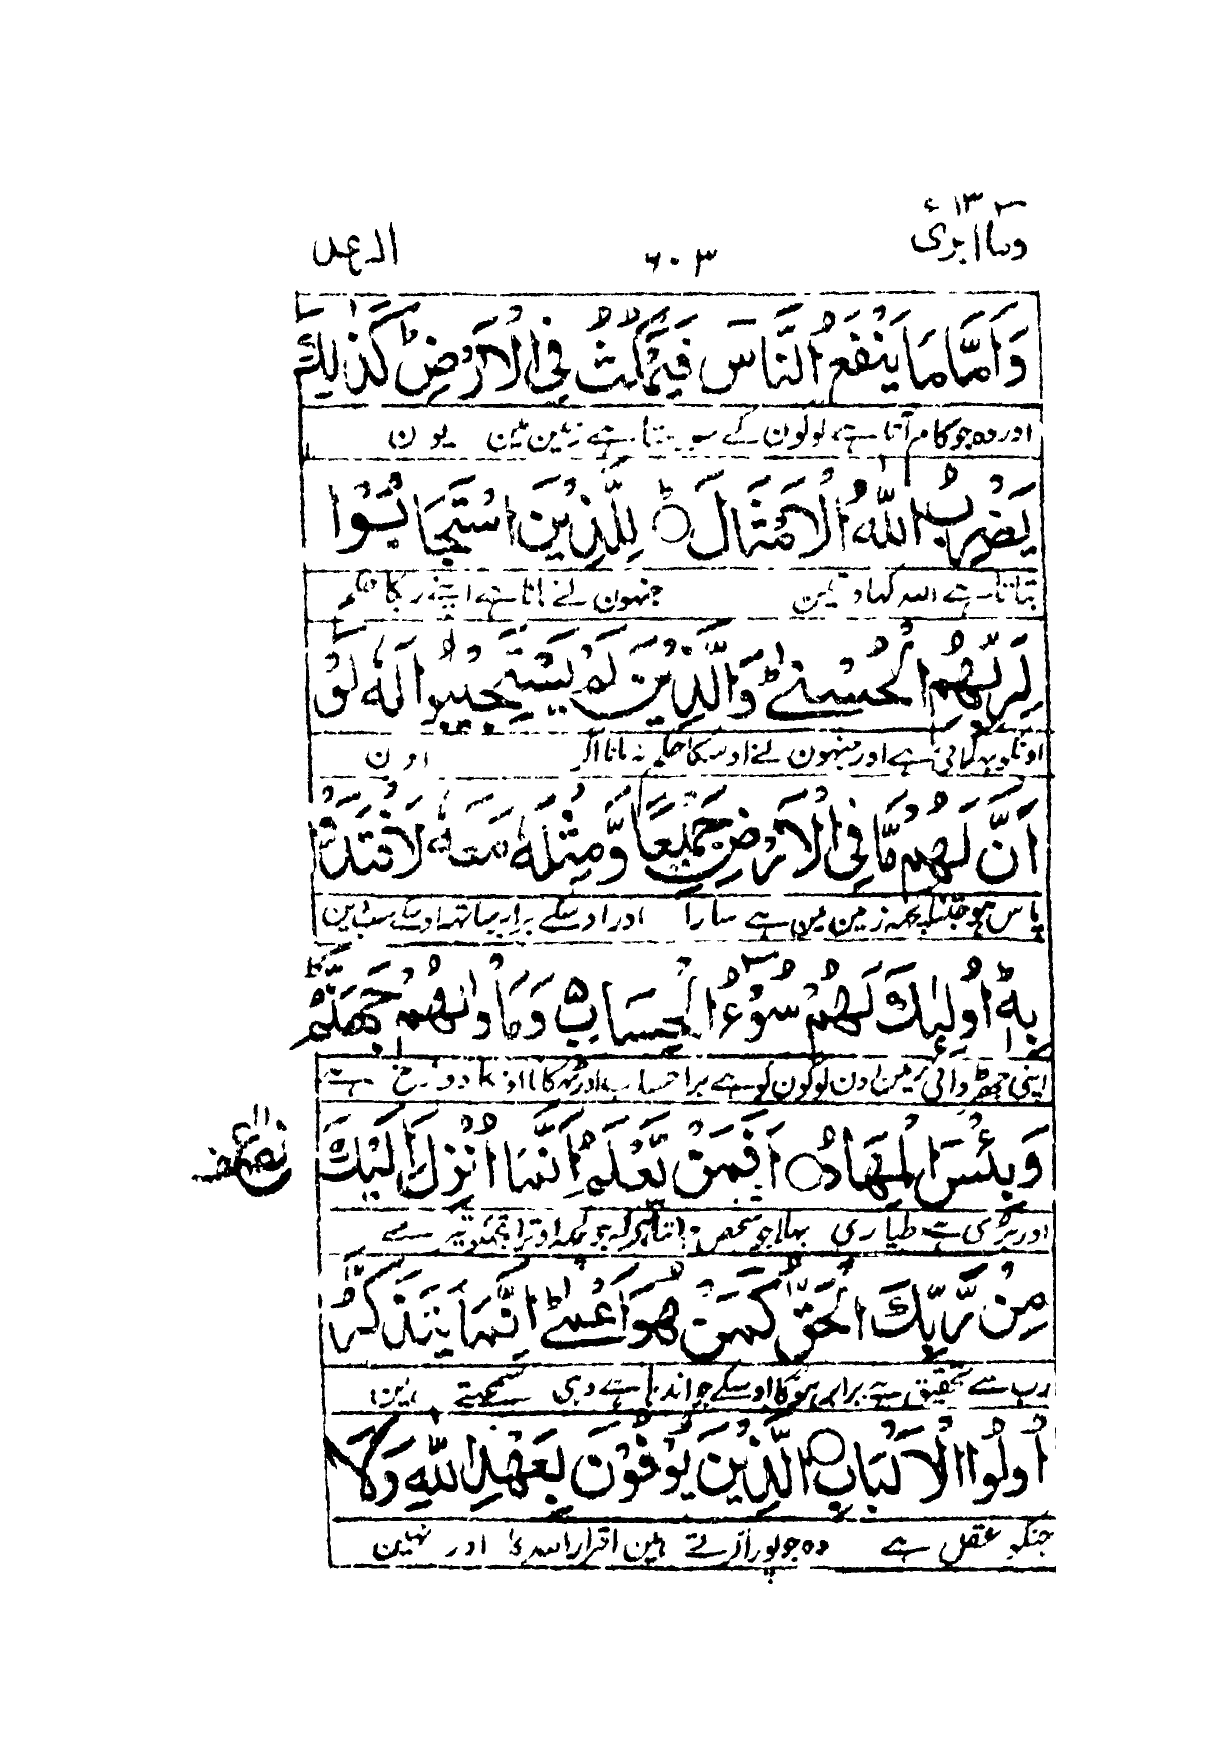 وما ابرئ ١٣
٦٠٣
الرعد
وَاَمَّا مَا يَنْفَعُ النَّاسَ فَيَمْكُثُ فِي الْاَرْضِ ؕ كَذٰلِكَ
اور وہ جو کام آتا ہے لوگون کے سو رہتا ہے زمین مین یون
يَضْرِبُ اللّٰهُ الْاَمْثَالَ ؕ لِلَّذِيْنَ اسْتَجَابُوْا
بتاتا ہے اللہ کہاوتین جنہون نے مانا ہے اپنے رب کا حکم
لِرَبِّهِمُ الْحُسْنٰى ؕ وَالَّذِيْنَ لَمْ يَسْتَجِيْبُوْا لَهٗ لَوْ
اونکو بہلائی ہے اور جنہون نے اوسکا حکم نہ مانا اگر اون
اَنَّ لَهُمْ مَّا فِي الْاَرْضِ جَمِيْعًا وَّمِثْلَهٗ مَعَهٗ لَافْتَدَوْا
پاس ہو جتنا کچہہ زمین مین ہے سارا اور اوسکے برابر ساتہہ اوسکے سب دین
بِهٖ ؕ اُولٰٓئِكَ لَهُمْ سُوْٓءُ الْحِسَابِ ۙ وَمَاْوٰىهُمْ جَهَنَّمُ ؕ
اپنی چہڑوائی مین اون لوگون کو ہے برا حساب اور ٹہکانا اونکا دوزخ ہے
وَبِئْسَ الْمِهَادُ اَفَمَنْ يَّعْلَمُ اَنَّمَآ اُنْزِلَ اِلَيْكَ
اور بری ہے طیاری بہلا جو شخص جانتا ہے کہ جو کچہہ اوترا تجہکو تیرے
مِنْ رَّبِّكَ الْحَقُّ كَمَنْ هُوَ اَعْمٰى ؕ اِنَّمَا يَتَذَكَّرُ
رب سے تحقیق ہے برابر ہوگا اوسکے جو اندہا ہے وہی سمجہتے ہین
اُولُوا الْاَلْبَابِ الَّذِيْنَ يُوْفُوْنَ بِعَهْدِ اللّٰهِ وَلَا
جنکو عقل ہے وہ جو پورا کرتے ہین اقرار اللہ کا اور نہین